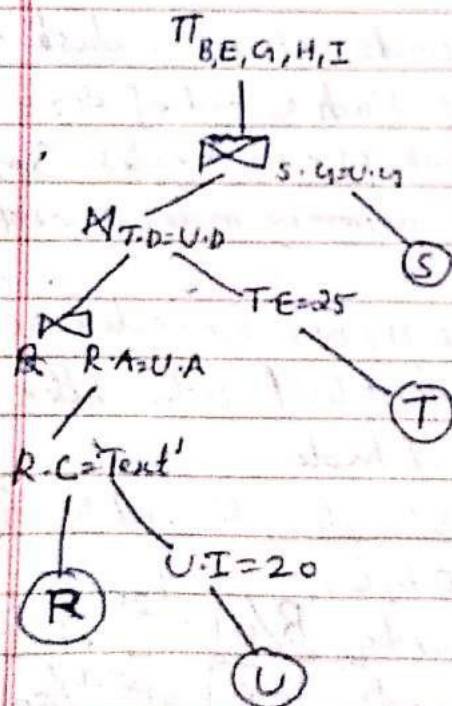 π B,E,G,H,I
⋈ S.G=U.G
⋈ T.D=U.D
S
T.E=25
⋈ R.A=U.A
T
R.C='Text'
U.I=20
R
U